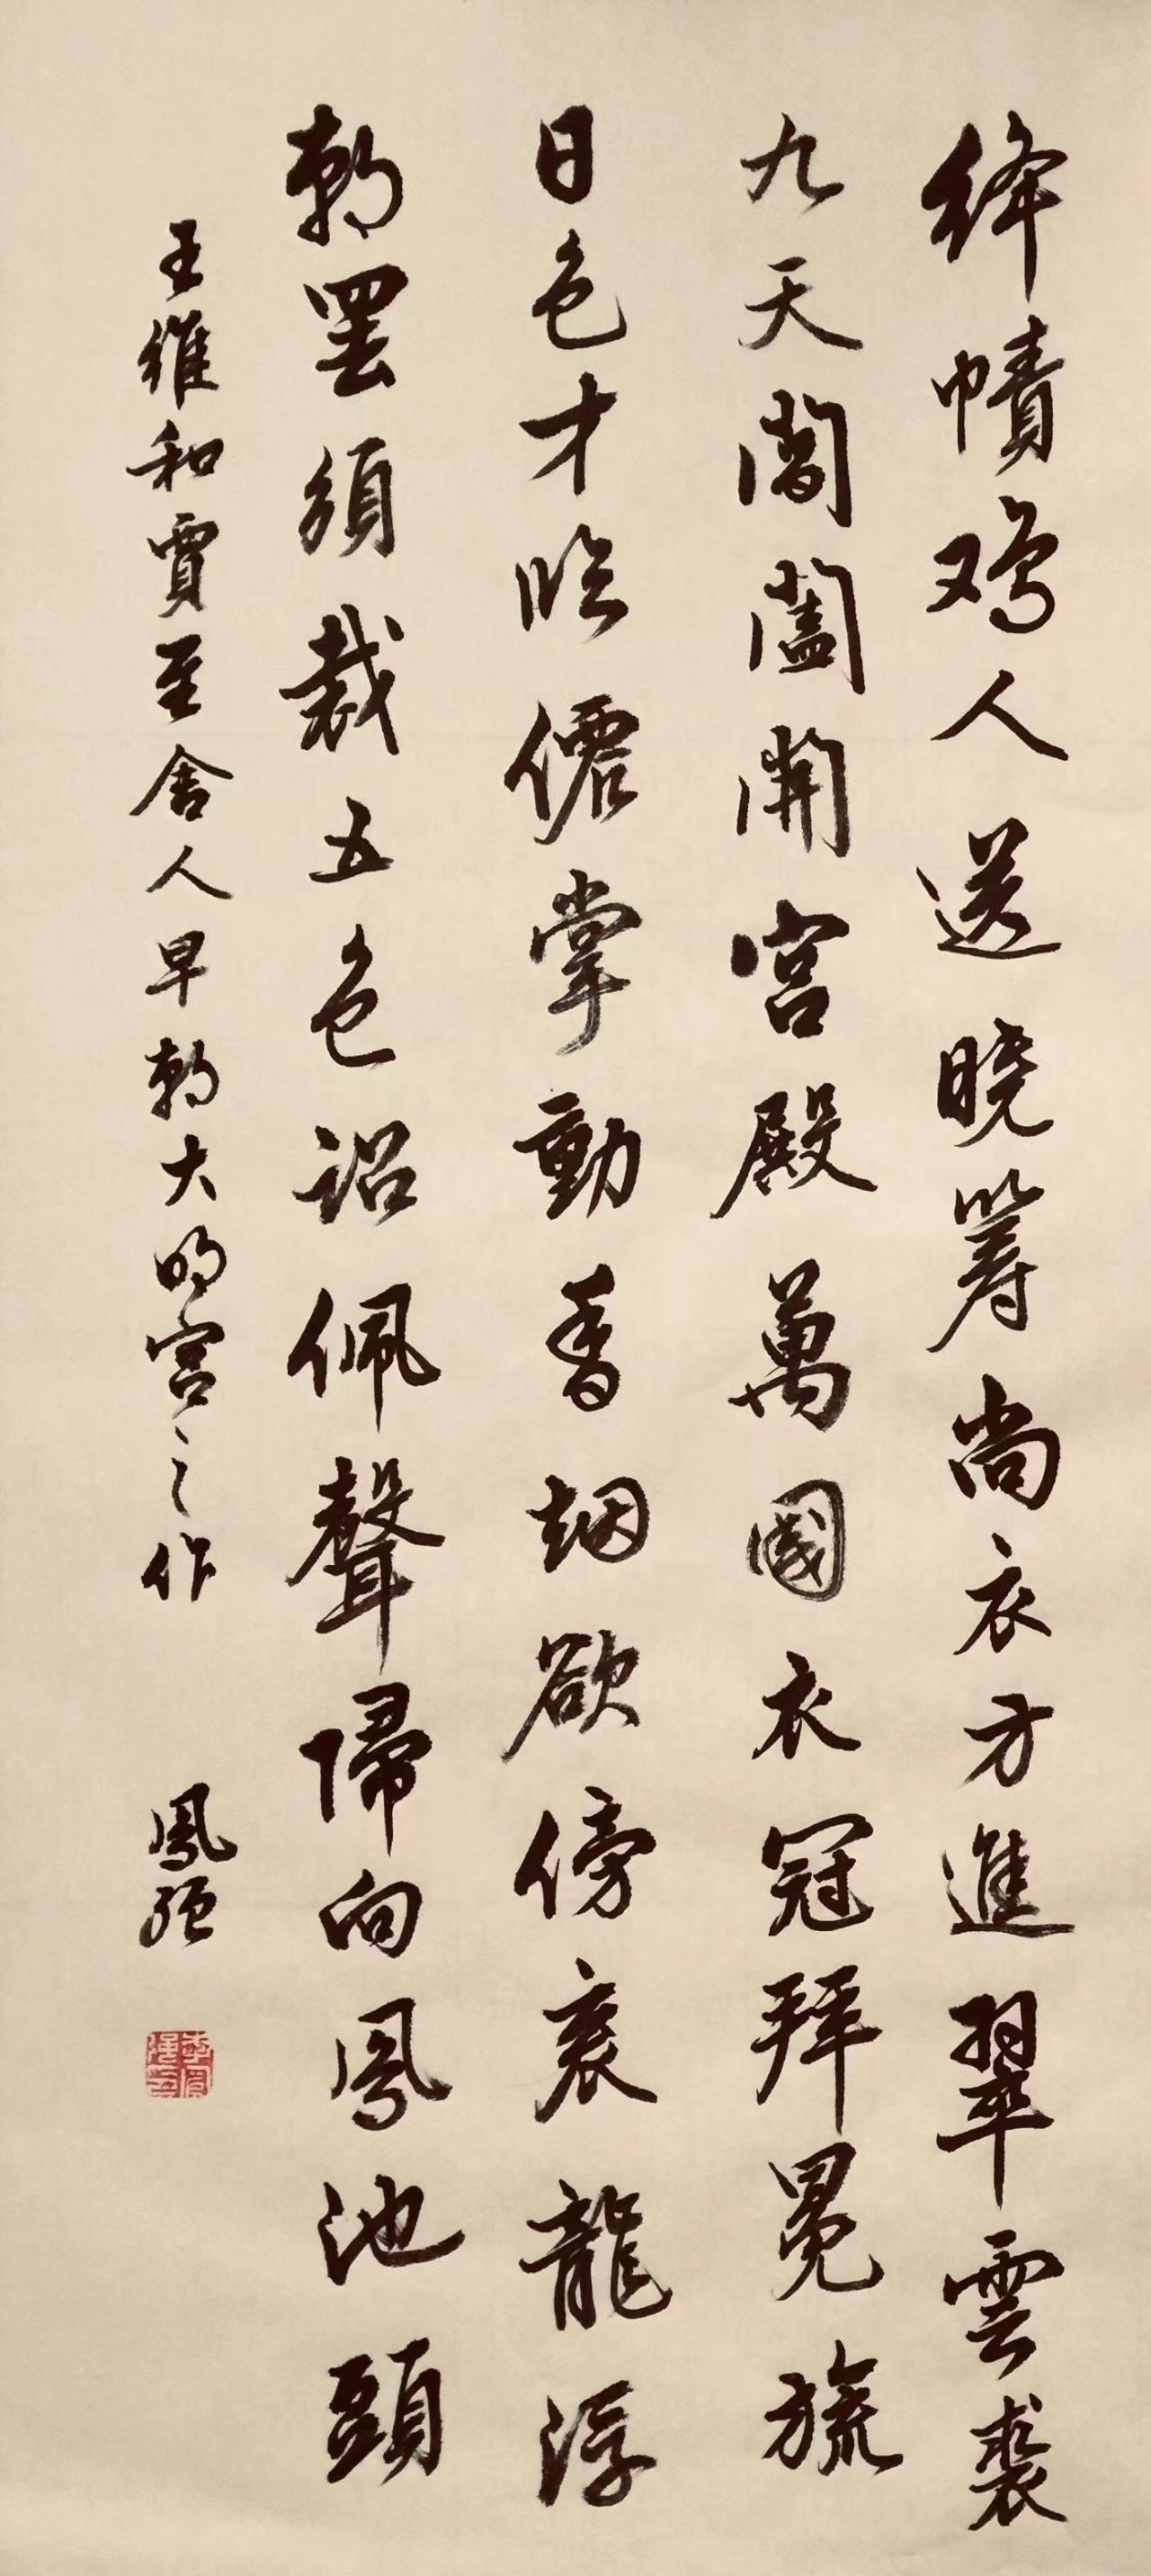 绛帻鸡人送晓筹尚衣方進翠雲裘
九天閶闔開宫殿萬國衣冠拜冕旒
日色才临僊掌動香烟欲傍衮龍浮
朝罢須裁五色詔佩聲歸向鳳池頭
王維和賈至舍人早朝大明宫之作
鳳强
李鳳强印